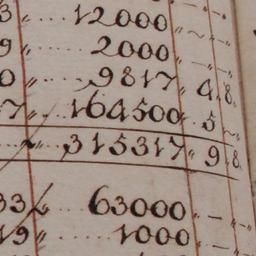 3 „ 12000 „ ~ „ ~
9 „ 2000 „ — „ —
0 „ 9817 „ 4 „ 8.
7 „ 164500 „ 5 „ ~
„ 315317 „ 9 „ 8.
33 „ 63000 „ — „ —
19 „ 1000 „ — „ —